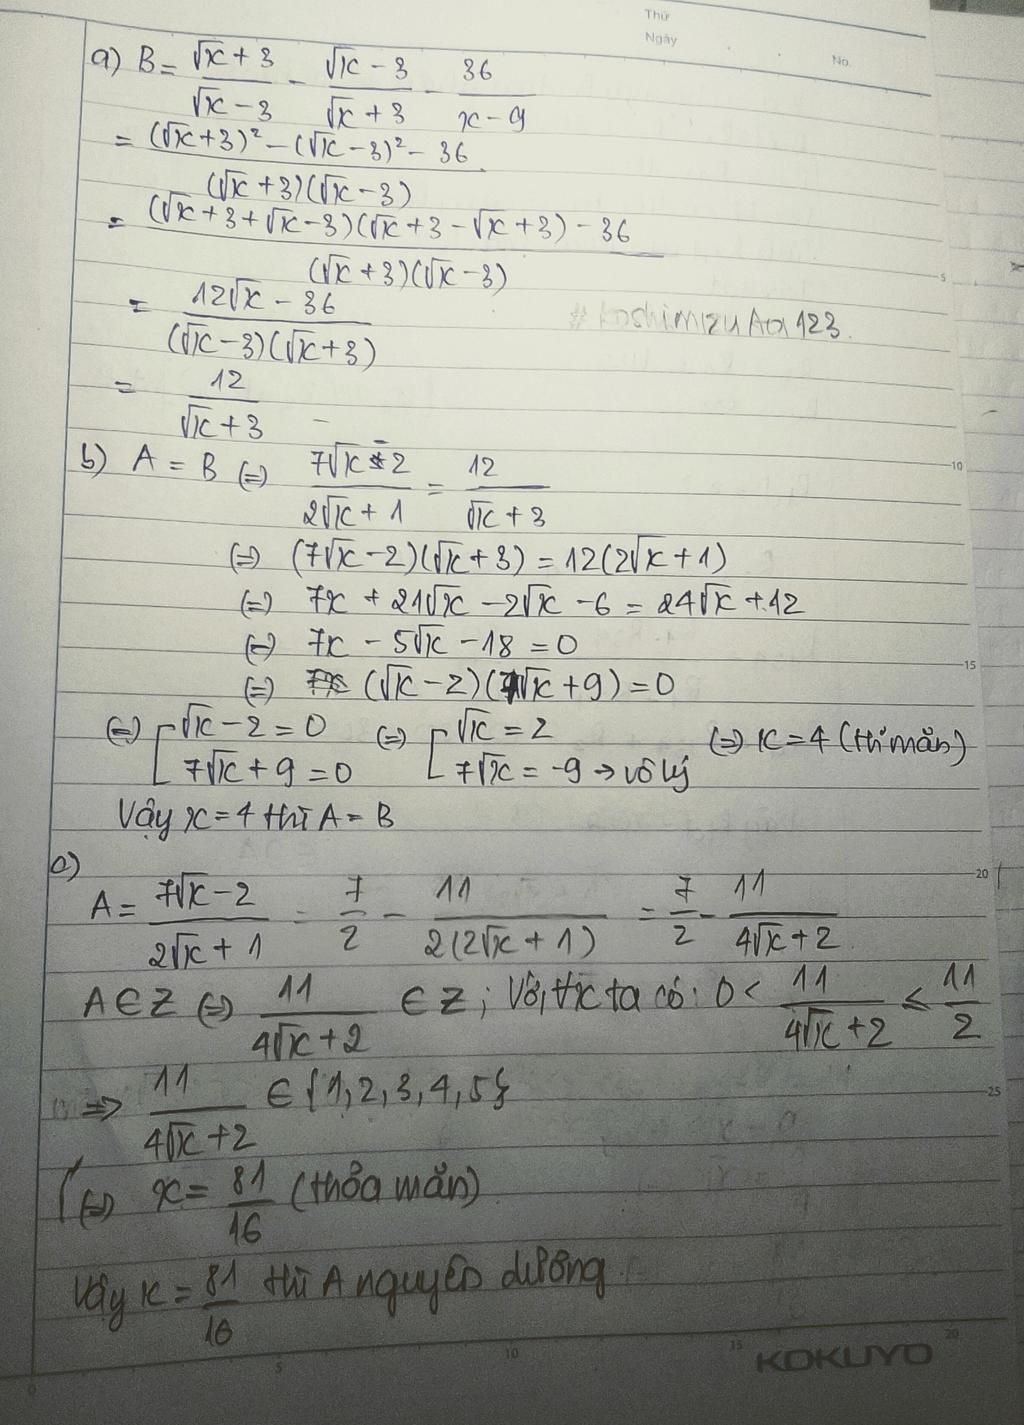 Thứ
Ngày
No.
a) B = (√x + 3)/(√x - 3) - (√x - 3)/(√x + 3) - 36/(x - 9)
= ((√x+3)² - (√x - 3)² - 36)/((√x + 3)(√x - 3))
= ((√x + 3 + √x - 3)(√x + 3 - √x + 3) - 36)/((√x + 3)(√x - 3))
= (12√x - 36)/((√x - 3)(√x + 3))
= 12/(√x + 3)
b) A = B (=) (7√x - 2)/(2√x + 1) = 12/(√x + 3)
(=) (7√x - 2)(√x + 3) = 12(2√x + 1)
(=) 7x + 21√x - 2√x - 6 = 24√x + 12
(=) 7x - 5√x - 18 = 0
(=) (√x - 2)(7√x + 9) = 0
(=) [ √x - 2 = 0 (=) [ √x = 2 (=) x = 4 (t/mãn)
7√x + 9 = 0 7√x = -9 → vô lý
Vậy x = 4 thì A = B
c)
A = (7√x - 2)/(2√x + 1) = 7/2 - 11/(2(2√x + 1)) = 7/2 - 11/(4√x + 2)
A ∈ Z (=) 11/(4√x + 2) ∈ Z ; Với ∀x ta có: 0 < 11/(4√x + 2) ≤ 11/2
=> 11/(4√x + 2) ∈ {1, 2, 3, 4, 5}
(=) x = 81/16 (thỏa mãn)
Vậy x = 81/16 thì A nguyên dương
5
10
15
20
25
0
5
10
15
20
KOKUYO